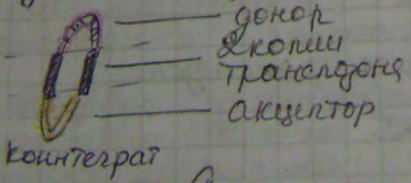 донор
2копии
транспозона
акцептор
коинтеграт